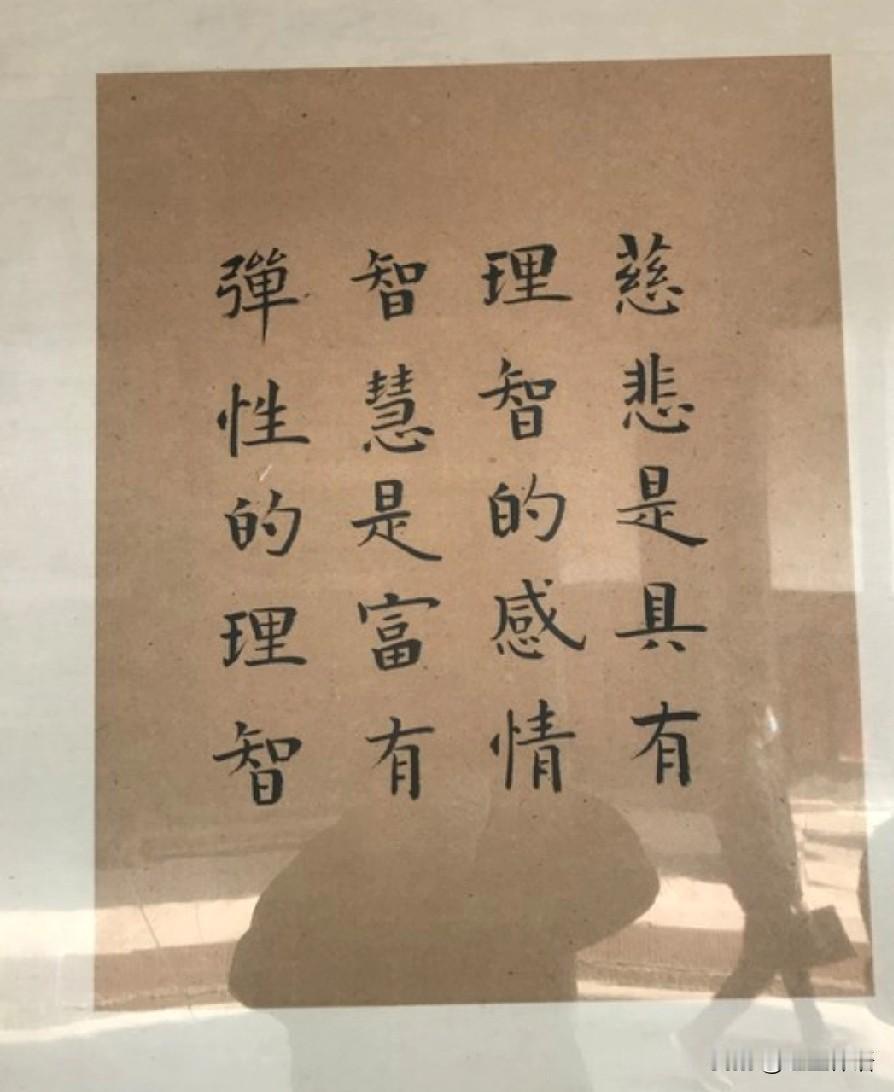 慈悲是具有
理智的感情
智慧是富有
彈性的理智